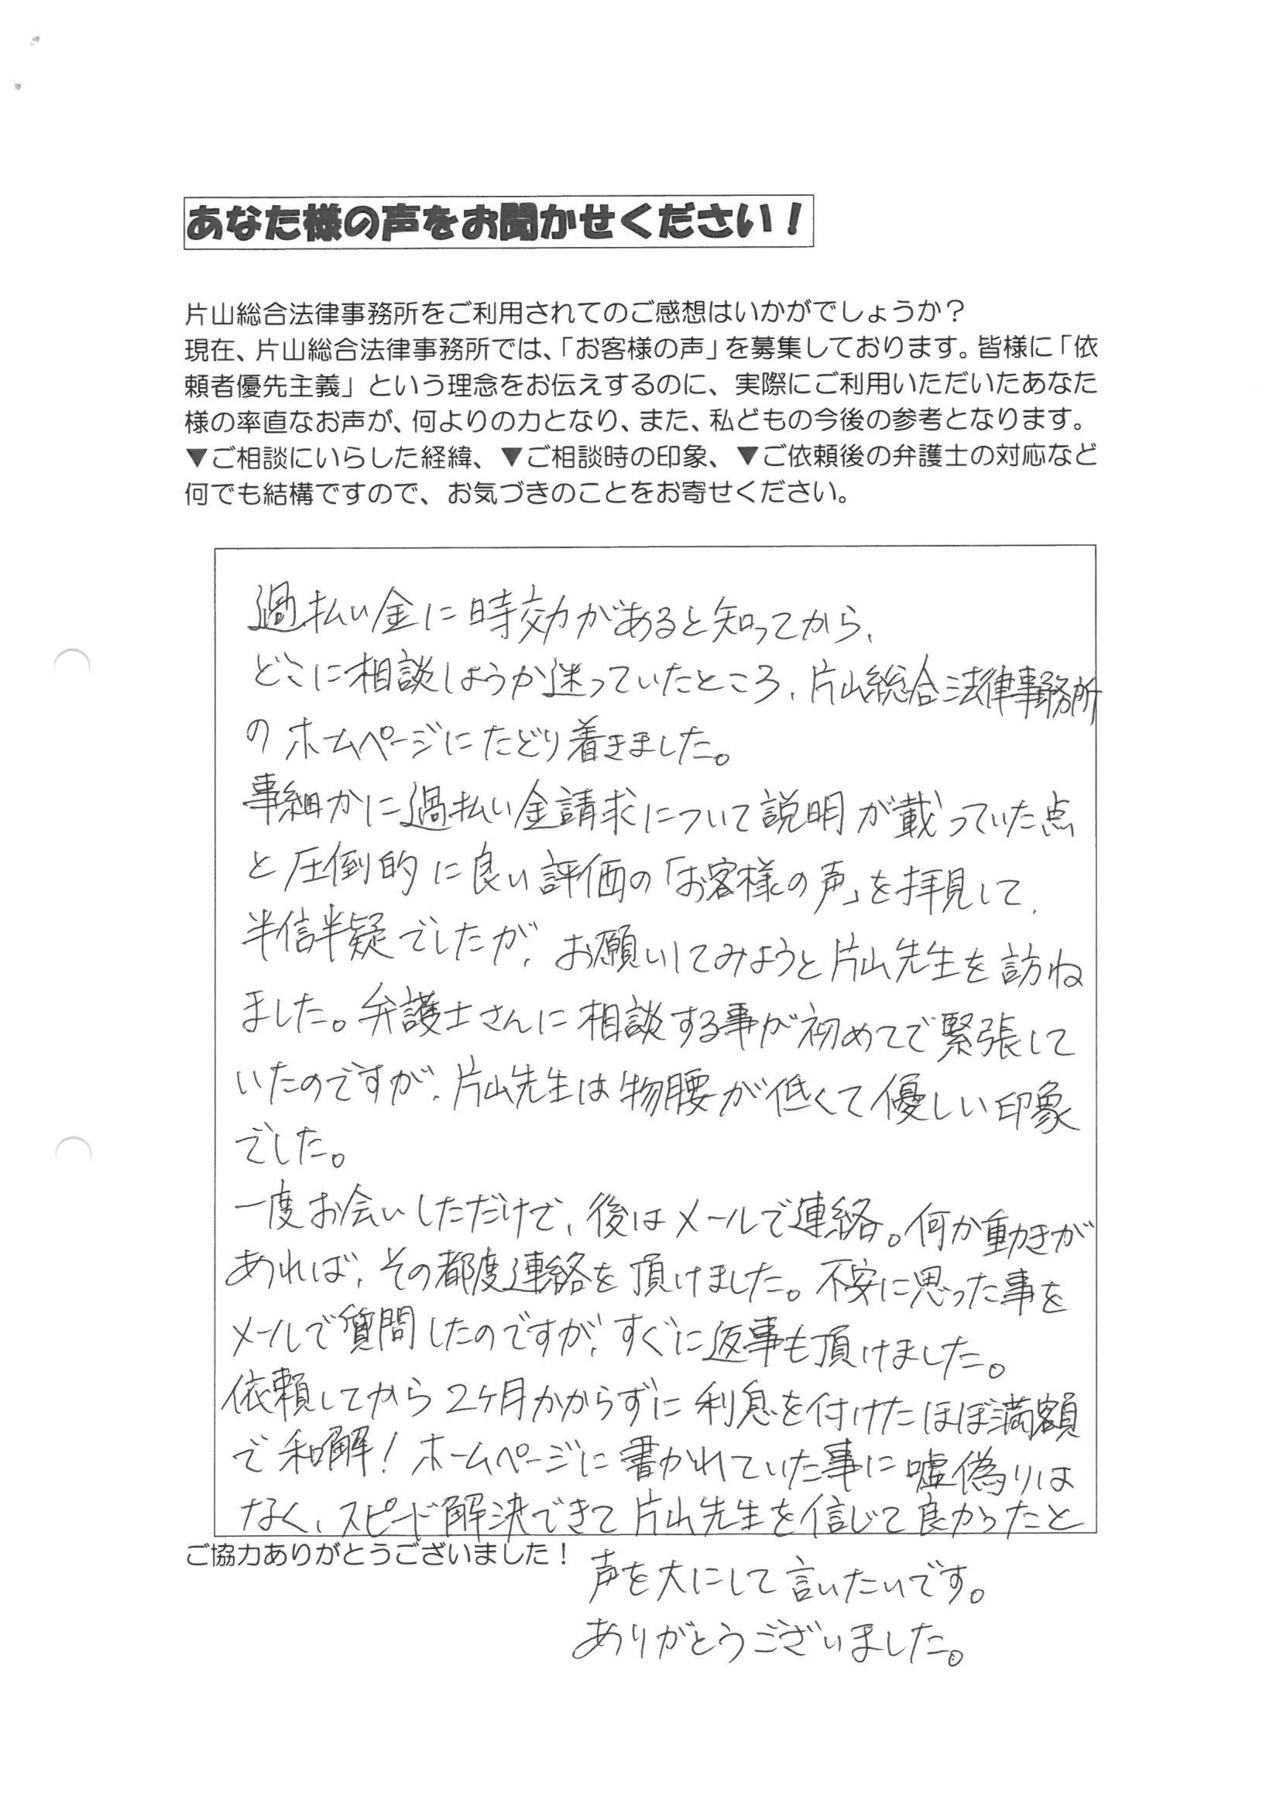 あなた様の声をお聞かせください！
片山総合法律事務所をご利用されてのご感想はいかがでしょうか？
現在、片山総合法律事務所では、「お客様の声」を募集しております。皆様に「依
頼者優先主義」という理念をお伝えするのに、実際にご利用いただいたあなた
様の率直なお声が、何よりの力となり、また、私どもの今後の参考となります。
▼ご相談にいらした経緯、▼ご相談時の印象、▼ご依頼後の弁護士の対応など
何でも結構ですので、お気づきのことをお寄せください。
過払い金に時効があると知ってから、
どこに相談しようか迷っていたところ、片山総合法律事務所
のホームページにたどり着きました。
事細かに過払い金請求について説明が載っていた点
と圧倒的に良い評価の「お客様の声」を拝見して、
半信半疑でしたが、お願いしてみようと片山先生を訪ね
ました。弁護士さんに相談する事が初めてで緊張して
いたのですが、片山先生は物腰が低くて優しい印象
でした。
一度お会いしただけで、後はメールで連絡。何か動きが
あれば、その都度連絡を頂けました。不安に思った事を
メールで質問したのですが、すぐに返事も頂けました。
依頼してから2ヶ月かからずに利息を付けたほぼ満額
で和解！ホームページに書かれていた事に嘘偽りは
なく、スピード解決できて片山先生を信じて良かったと
ご協力ありがとうございました！
声を大にして言いたいです。
ありがとうございました。